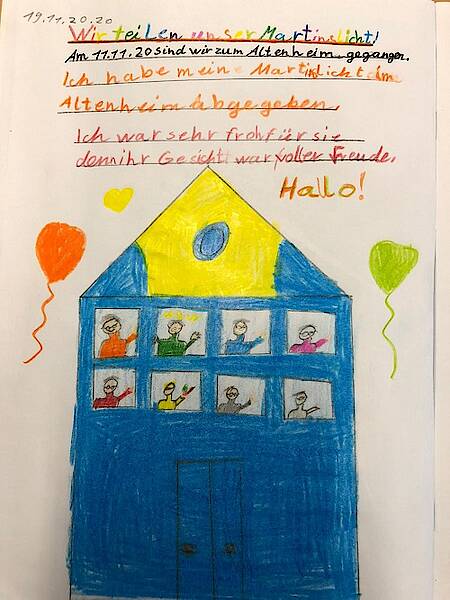 19.11.2020
Wir teilen unser Martinslicht!
Am 11.11.20 sind wir zum Altenheim gegangen.
Ich habe meine Martinslicht
Altenheim abgegeben.
Ich war sehr froh für sie
denn ihr Gesicht war voller Freude.
Hallo!